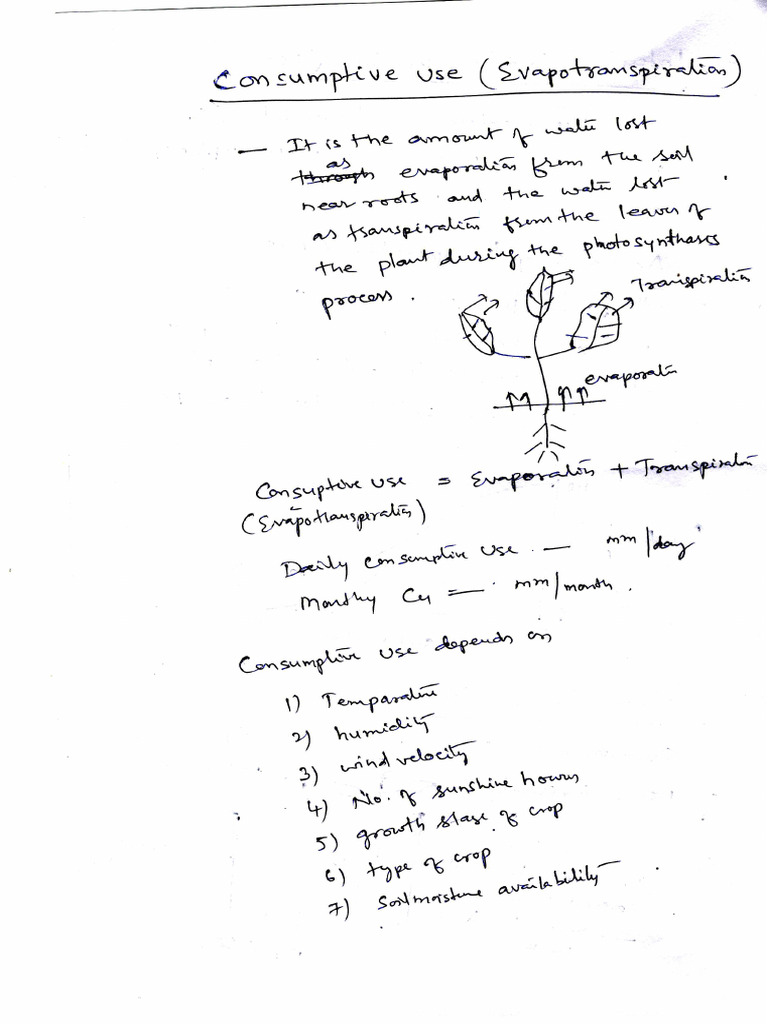 Consumptive use (Evapotranspiration)
— It is the amount of water lost
as
through evaporation from the soil
near roots and the water lost
as transpiration from the leaves of
the plant during the photosynthases
process.
Transpiration
evaporation
Consuptive use = Evaporation + Transpiration
(Evapotranspiration)
Daily consumptive use — mm/day
Monthy Cu — mm/month.
Consumptive use depends on
1) Temparature
2) humidity
3) wind velocity
4) No. of sunshine hours
5) growth stage of crop
6) type of crop
7) Soil moisture availability